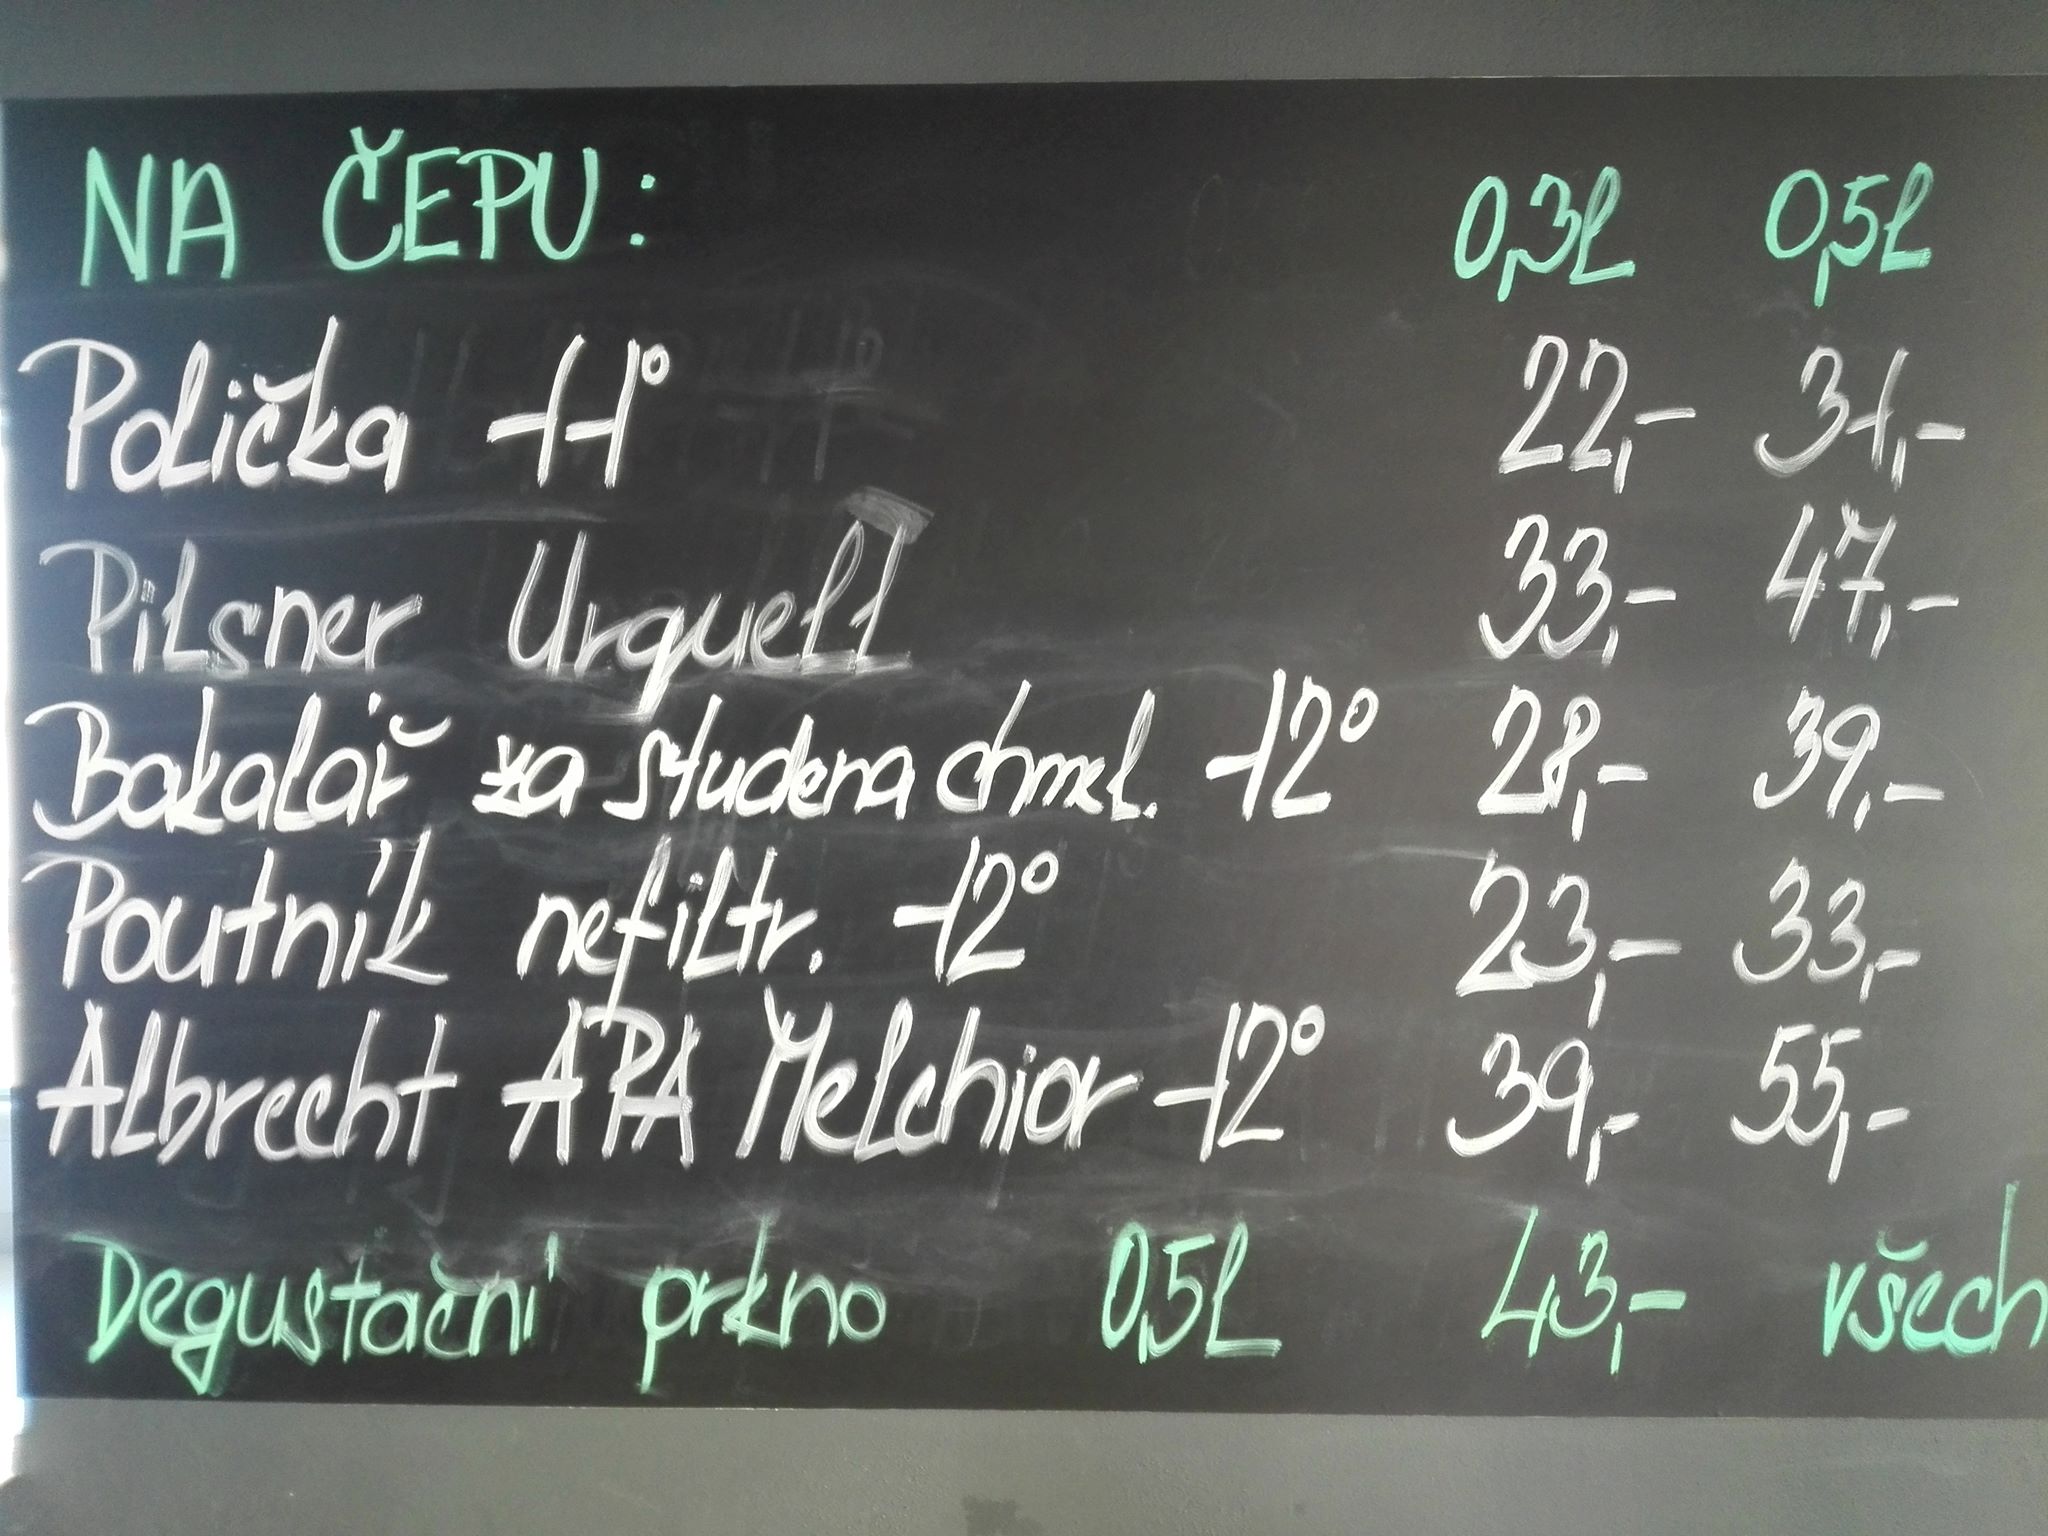 NA ČEPU: 0,3l 0,5l
Polička 11° 22,- 31,-
Pilsner Urquell 33,- 47,-
Bakalář za studena chmel. 12° 28,- 39,-
Poutník nefiltr. 12° 23,- 33,-
Albrecht APA Melchior 12° 39,- 55,-
Degustační prkno 0,5l 43,- všech